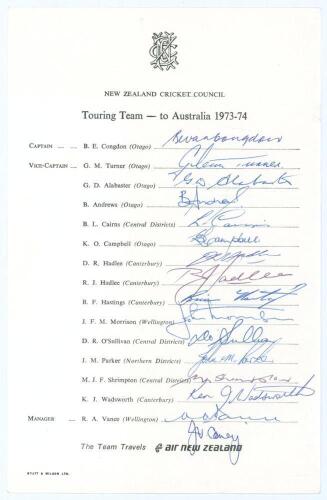 NEW ZEALAND CRICKET COUNCIL
Touring Team — to Australia 1973-74
CAPTAIN ... ... B. E. Congdon (Otago) Bevan Congdon
VICE-CAPTAIN ... G. M. Turner (Otago) Glenn Turner
G. D. Alabaster (Otago) G D Alabaster
B. Andrews (Otago) B Andrews
B. L. Cairns (Central Districts) L. Cairns
K. O. Campbell (Otago) Campbell
D. R. Hadlee (Canterbury) Hadlee
R. J. Hadlee (Canterbury) R J Hadlee
B. F. Hastings (Canterbury) Brian Hastings
J. F. M. Morrison (Wellington) John Morrison
D. R. O'Sullivan (Central Districts) O'Sullivan
J. M. Parker (Northern Districts) John M. Parker
M. J. F. Shrimpton (Central Districts) Shrimpton
K. J. Wadsworth (Canterbury) Ken J Wadsworth
MANAGER ... R. A. Vance (Wellington)
The Team Travels AIR NEW ZEALAND
HYATT & WILSON LTD.